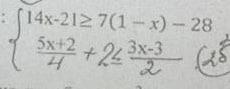 : { 14x-21 ≥ 7(1 - x) - 28
(5x+2)/4 + 2 ≤ (3x-3)/2